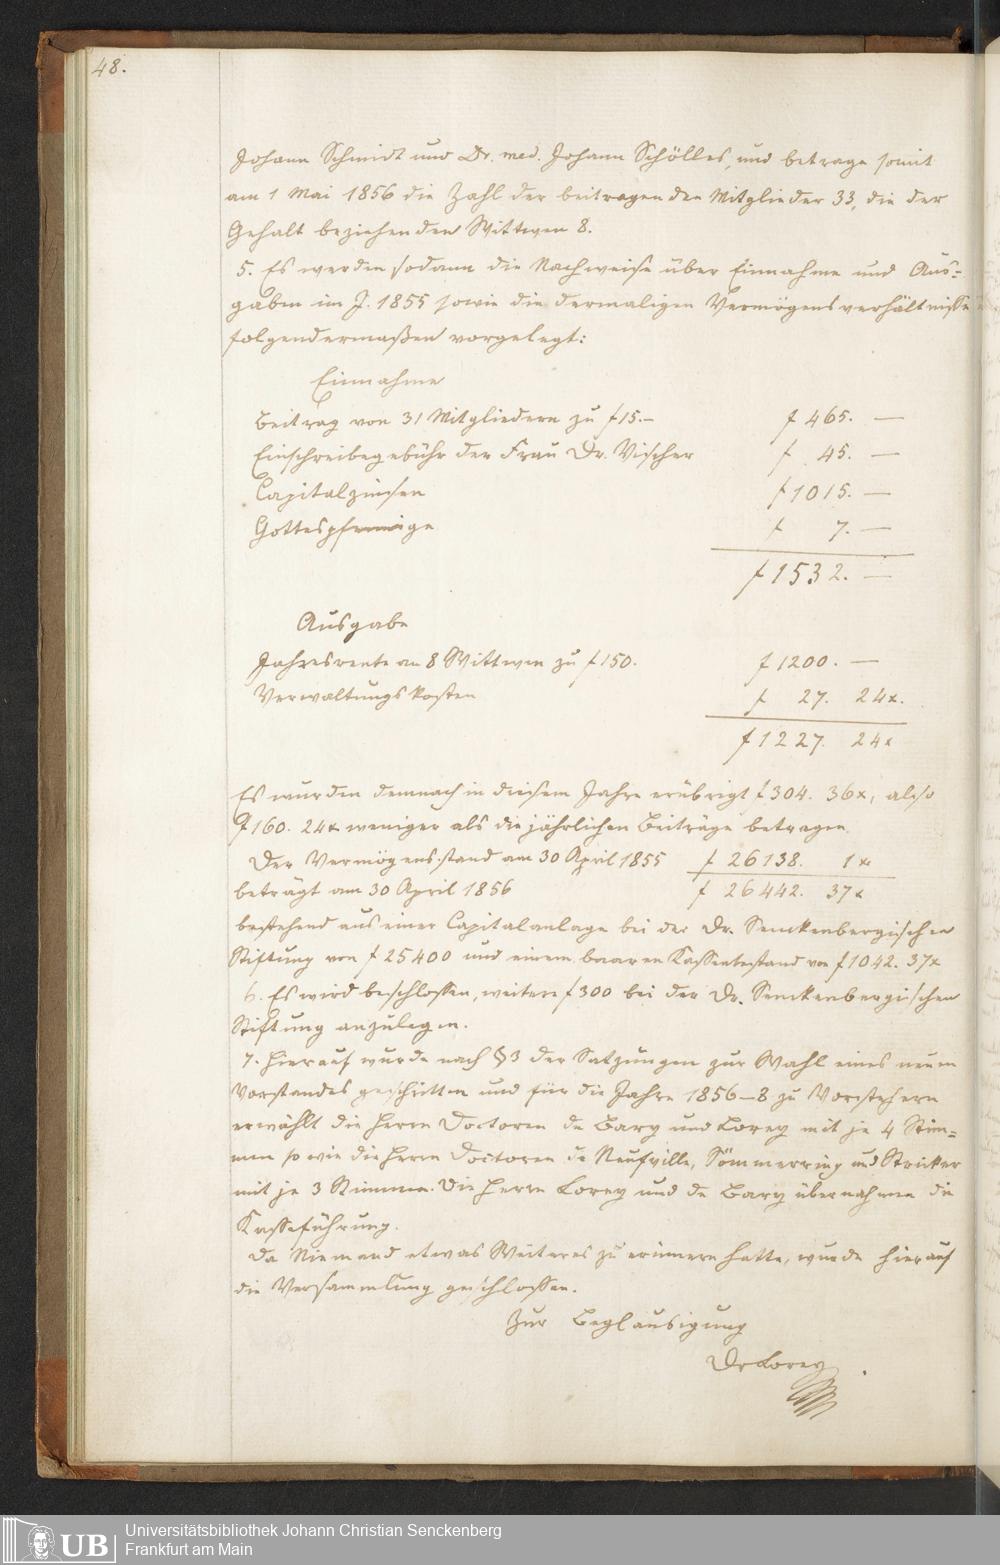 48.
Johann Schmidt und Dr. med. Johann Schölles, und betrage somit
am 1 Mai 1856 die Zahl der beitragenden Mitglieder 33, die der
Gehalt beziehenden Wittwen 8.
5. Es werden sodann die Nachweise über Einnahme und Aus-
gaben im J. 1855 sowie die dermaligen Vermögensverhältnisse
folgendermaßen vorgelegt:
Einnahme
Beitrag von 31 Mitgliedern zu f 15.— f 465. —
Einschreibegebühr der Frau Dr. Vischer f 45. —
Capitalzinsen f 1015. —
Gottespfennige f 7. —
f 1532. —
Ausgabe
Jahresrente an 8 Wittwen zu f 150. f 1200. —
Verwaltungskosten f 27. 24x.
f 1227. 24x
Es wurden demnach in diesem Jahre erübrigt f 304. 36x, also
f 160. 24x weniger als die jährlichen Beiträge betragen.
Der Vermögensstand am 30 April 1855 f 26138. 1x
beträgt am 30 April 1856 f 26442. 37x
bestehend aus einer Capitalanlage bei der Dr. Senckenbergischen
Stiftung von f 25400 und einem baaren Kassenbestand von f 1042. 37x
6. Es wird beschlossen, weitere f 300 bei der Dr. Senckenbergischen
Stiftung anzulegen.
7. Hierauf wurde nach § 3 der Satzungen zur Wahl eines neuen
Vorstandes geschritten und für die Jahre 1856–8 zu Vorstehern
erwählt die Herrn Doctoren de Bary und Lorey mit je 4 Stim-
men sowie die Herrn Doctoren de Neufville, Sömmerring und Stricker
mit je 3 Stimmen. Die Herrn Lorey und de Bary übernahmen die
Kasseführung.
Da Niemand etwas Weiteres zu erinnern hatte, wurde hierauf
die Versammlung geschlossen.
Zur Beglaubigung
Dr Lorey
UB
Universitätsbibliothek Johann Christian Senckenberg
Frankfurt am Main